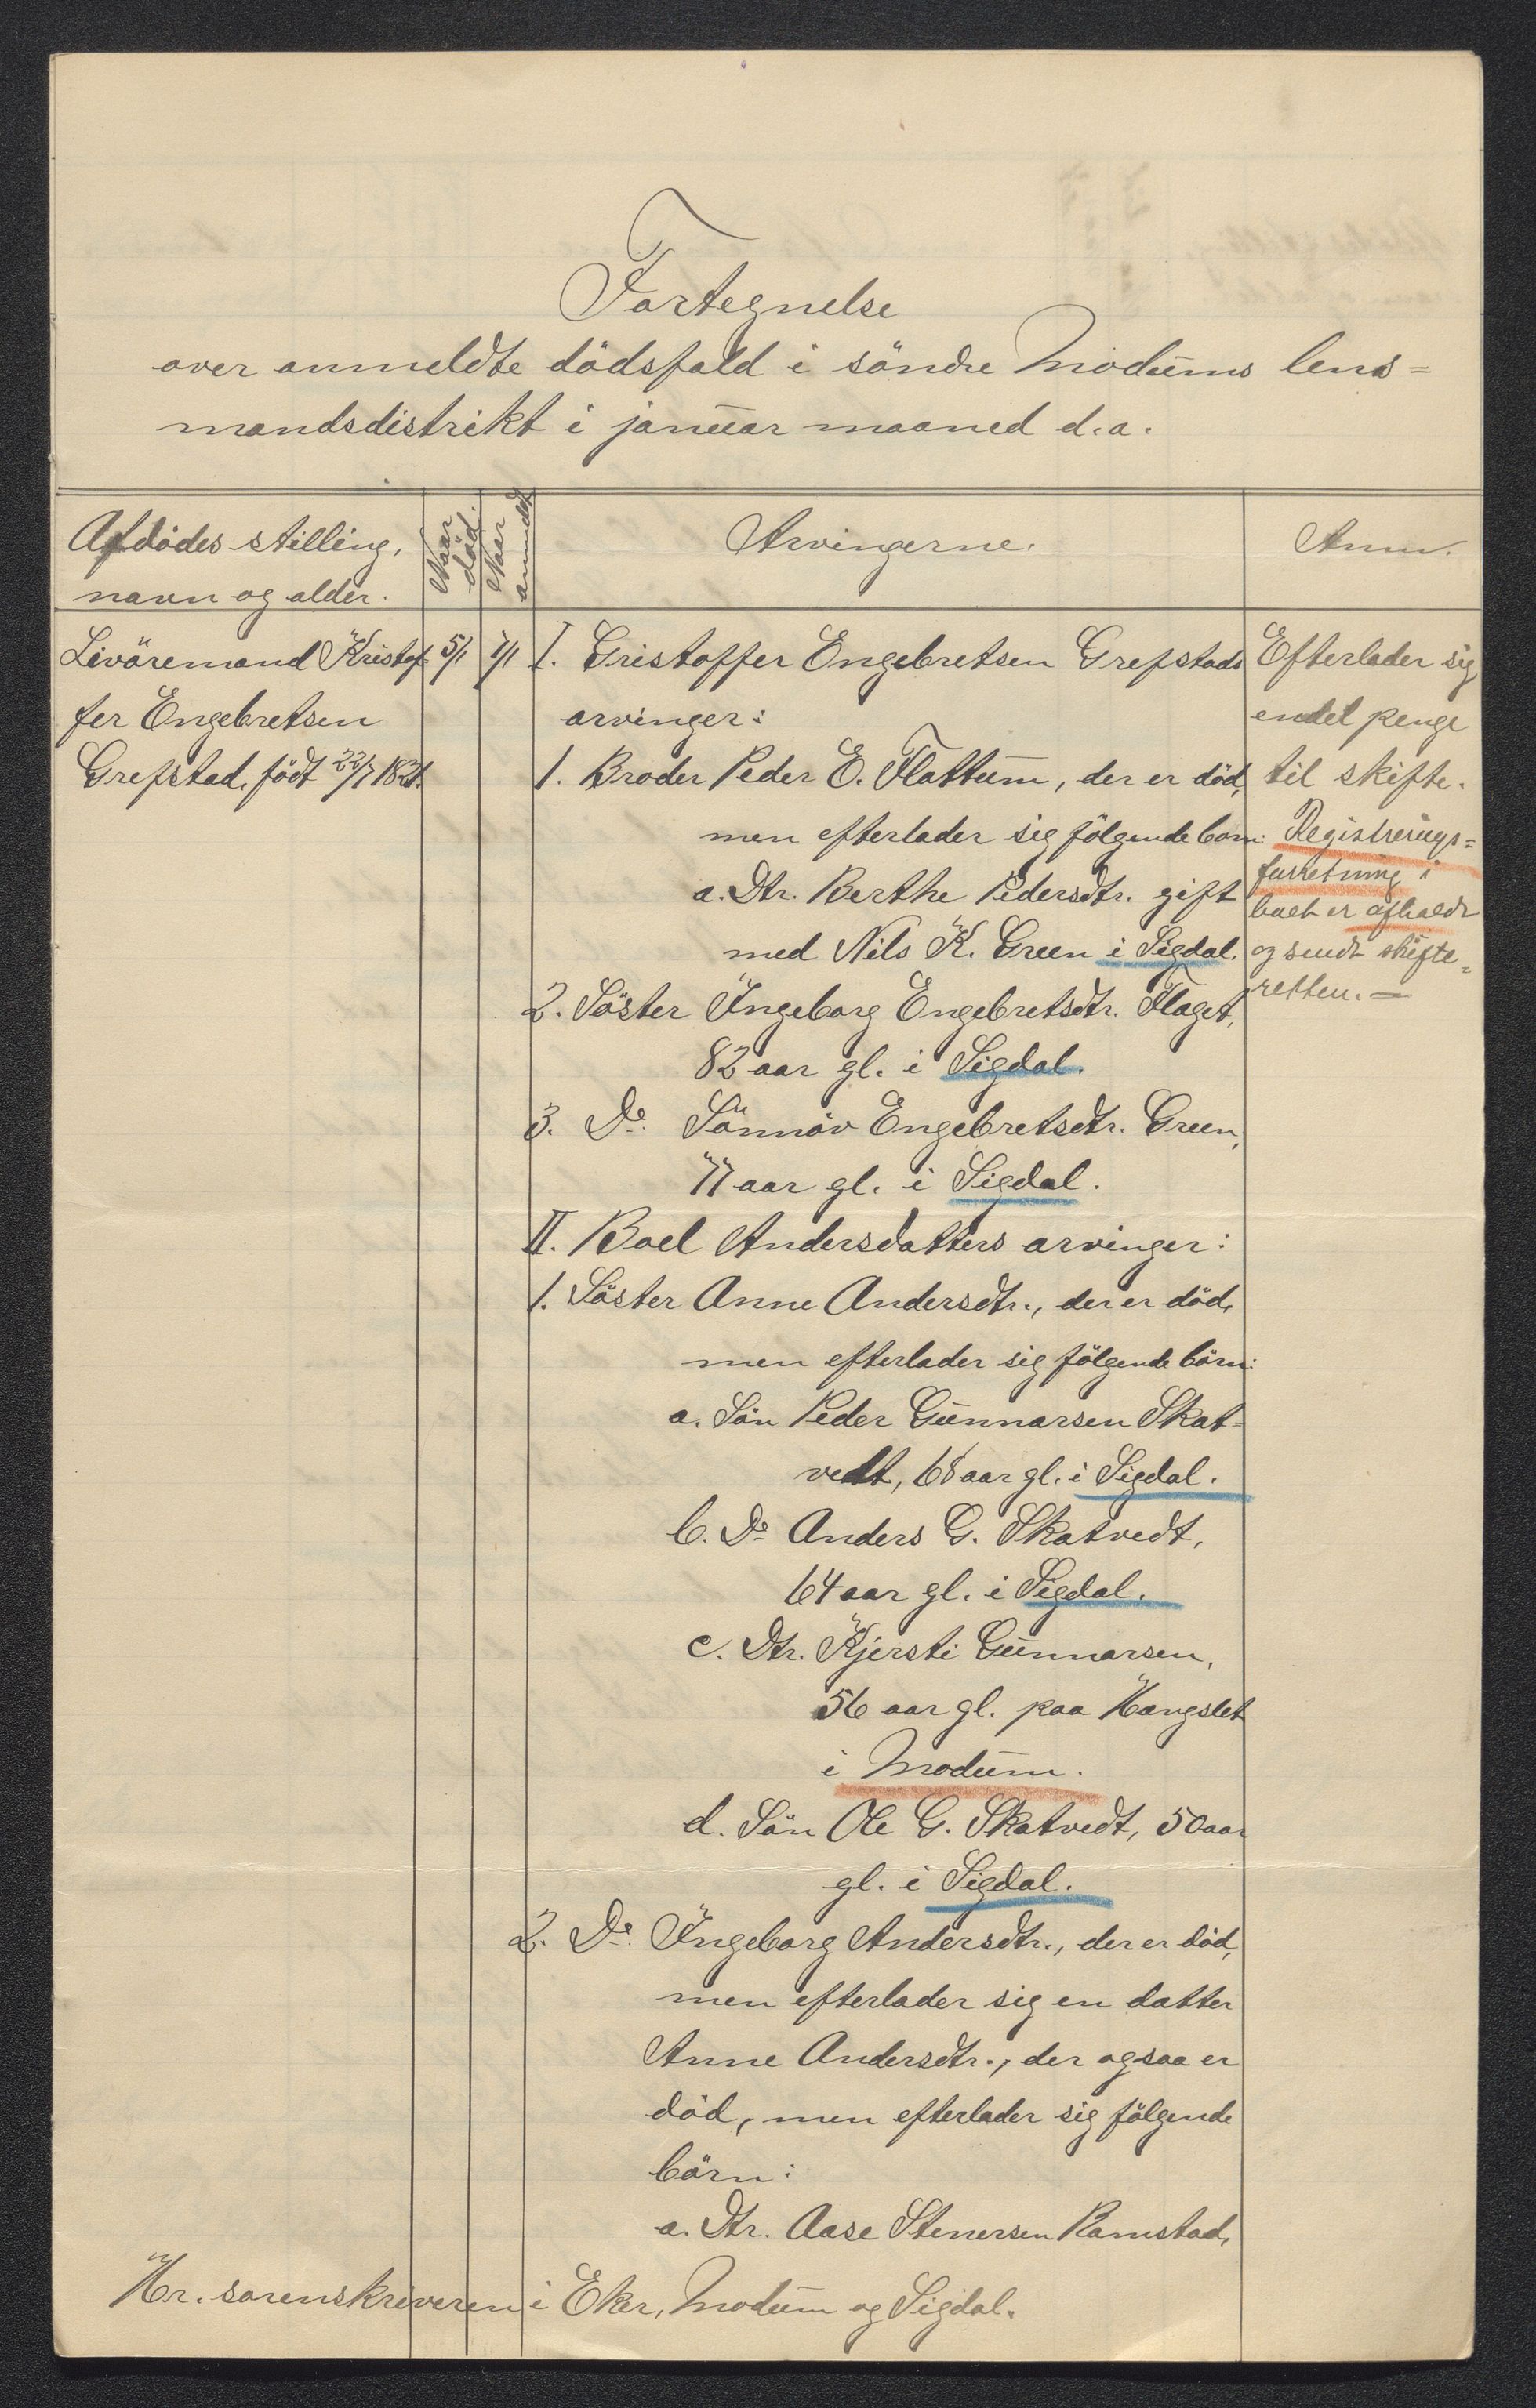 Fortegnelse
over anmeldte dödsfald i söndre Modums lens=
mandsdistrikt i januar maaned d.a.
Afdödes stilling,
navn og alder.
Naar
död.
Naar
anmeldt
Arvingerne.
Anm.
Livöremand Kristof-
fer Engebretsen
Grefstad, födt 22/7 1821.
5/1
7/1
I. Gristoffer Engebretsen Grefstads
arvinger:
1. Broder Peder E. Flattum, der er död,
men efterlader sig fölgende born:
a. Dtr. Berthe Pedersdtr. gift
med Nils K. Green i Sigdal.
2. Söster Ingeborg Engebretsdtr. Flaget,
82 aar gl. i Sigdal.
3. Do. Sönnöv Engebretsdtr. Green,
77 aar gl. i Sigdal.
II. Boel Andersdatters arvinger:
1. Söster Anne Andersdtr., der er död,
men efterlader sig fölgende börn:
a. Sön Peder Gunnarsen Skat=
vedt, 68 aar gl. i Sigdal.
b. Do Anders G. Skatvedt,
64 aar gl. i Sigdal.
c. Dtr. Kjersti Gunnarsen,
56 aar gl. paa Hangslet
i Modum.
d. Sön Ole G. Skatvedt, 50 aar
gl. i Sigdal.
2. Do. Ingeborg Andersdtr., der er död,
men efterlader sig en datter
Anne Andersdtr., der ogsaa er
död, men efterlader sig fölgende
börn:
a. Dtr. Aase Stenersen Ramstad,
Efterlader sig
endel penge
til skifte.
Registrerings=
forretning i
boet er afholdt
og sendt skifte=
retten. —
Hr. sorenskriveren i Eker, Modum og Sigdal.